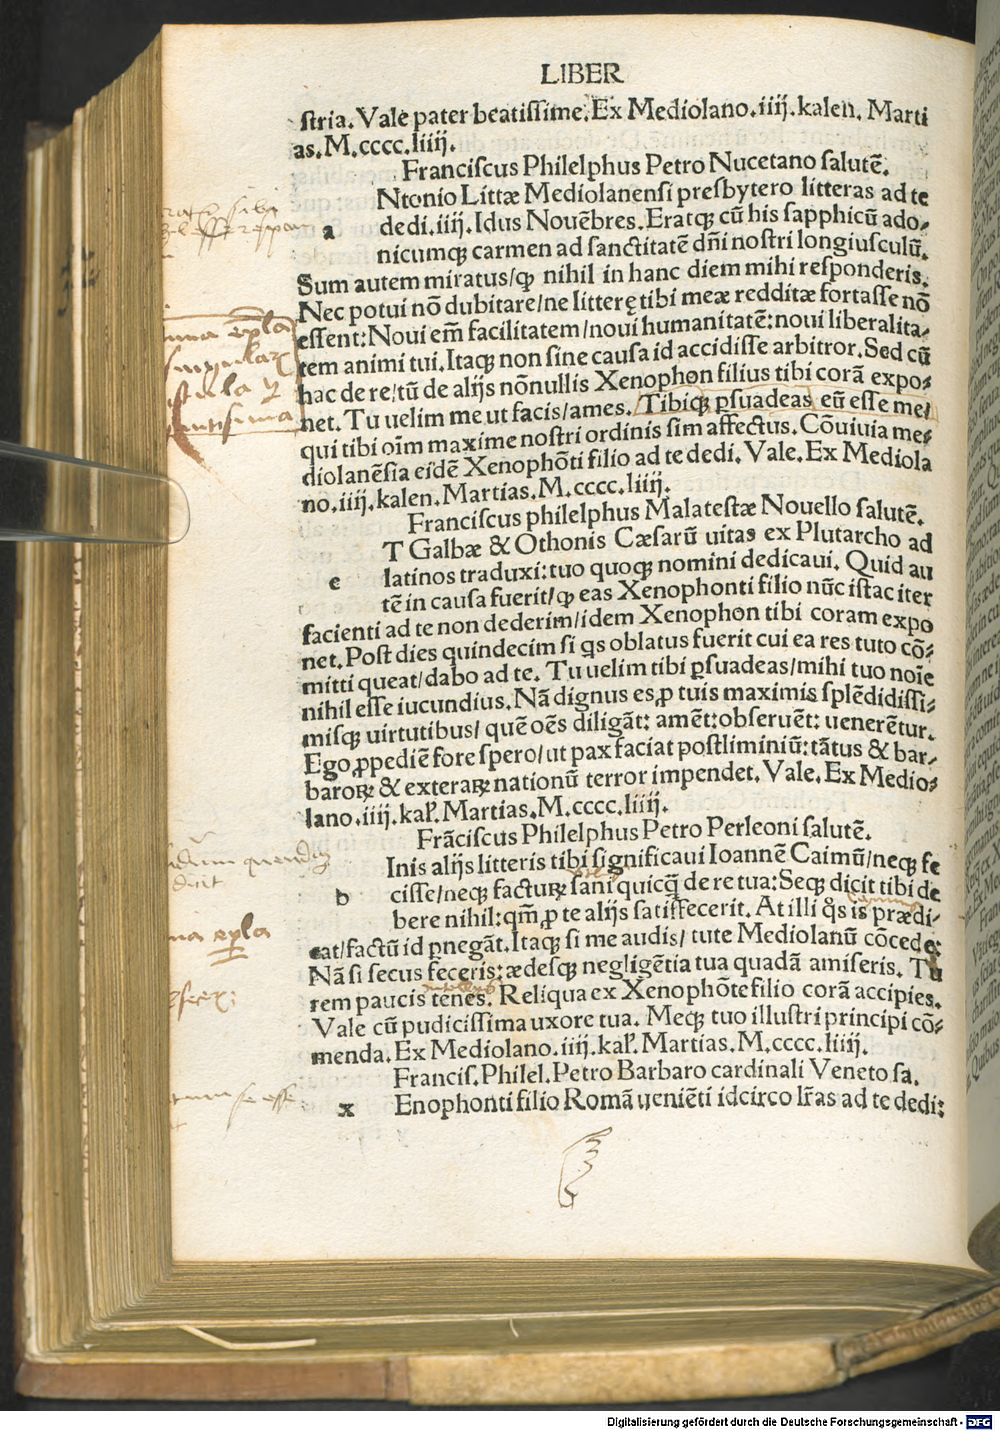 LIBER
stria. Vale pater beatissime. Ex Mediolano. iiij. kalen. Marti
as. M. cccc. liiij.
Franciscus Philelphus Petro Nucetano salutē.
a Ntonio Littæ Mediolanensi presbytero litteras ad te
dedi. iiij. Idus Nouēbres. Eratqꝫ cū his sapphicū ado-
nicumqꝫ carmen ad sanctitatē dn̄i nostri longiusculū.
Sum autem miratus/ꝙ nihil in hanc diem mihi responderis.
Nec potui nō dubitare/ne litterę tibi meæ redditæ fortasse nō
essent: Noui em̄ facilitatem/noui humanitatē: noui liberalita-
tem animi tui. Itaqꝫ non sine causa id accidisse arbitror. Sed cū
hac de re/tū de alijs nōnullis Xenophon filius tibi corā expo-
net. Tu uelim me ut facis/ames. Tibiqꝫ ꝑsuadeas eū esse me/
qui tibi oīm maxime nostri ordinis sim affectus. Cōuiuia me-
diolanēsia eidē Xenophōti filio ad te dedi. Vale. Ex Mediola
no. iiij. kalen. Martias. M. cccc. liiij.
Franciscus philelphus Malatestæ Nouello salutē.
e T Galbæ & Othonis Cæsarū uitas ex Plutarcho ad
latinos traduxi: tuo quoqꝫ nomini dedicaui. Quid au
tē in causa fuerit/ꝙ eas Xenophonti filio nūc istac iter
facienti ad te non dederim/idem Xenophon tibi coram expo
net. Post dies quindecim si qs oblatus fuerit cui ea res tuto cō-
mitti queat/dabo ad te. Tu uelim tibi ꝑsuadeas/mihi tuo noīe
nihil esse iucundius. Nā dignus es ꝓ tuis maximis splēdidissi-
misqꝫ uirtutibus/ quē oēs diligāt: amēt: obseruēt: uenerētur.
Ego ꝓpediē fore spero/ut pax faciat postliminiū: tātus & bar-
baroꝝ & exteraꝝ nationū terror impendet. Vale. Ex Medio-
lano. iiij. kal. Martias. M. cccc. liiij.
Frāciscus Philelphus Petro Perleoni salutē.
b Inis alijs litteris tibi significaui Ioannē Caimū/neqꝫ fe
cisse/neqꝫ facturꝝ sani quicq̄ de re tua: Seqꝫ dicit tibi de
bere nihil: qm̄ ꝓ te alijs satisfecerit. At illi qs is prædi-
cat/factū id ꝑnegāt. Itaqꝫ si me audis/ tute Mediolanū cōcede:
Nā si secus feceris: ædesqꝫ negligētia tua quadā amiseris. Tu
rem paucis tenes. Reliqua ex Xenophōte filio corā accipies.
Vale cū pudicissima uxore tua. Meqꝫ tuo illustri principi cō-
menda. Ex Mediolano. iiij. kal. Martias. M. cccc. liiij.
Francis. Philel. Petro Barbaro cardinali Veneto sa.
x Enophonti filio Romā ueniēti idcirco lr̄as ad te dedi:
Digitalisierung gefördert durch die Deutsche Forschungsgemeinschaft - DFG